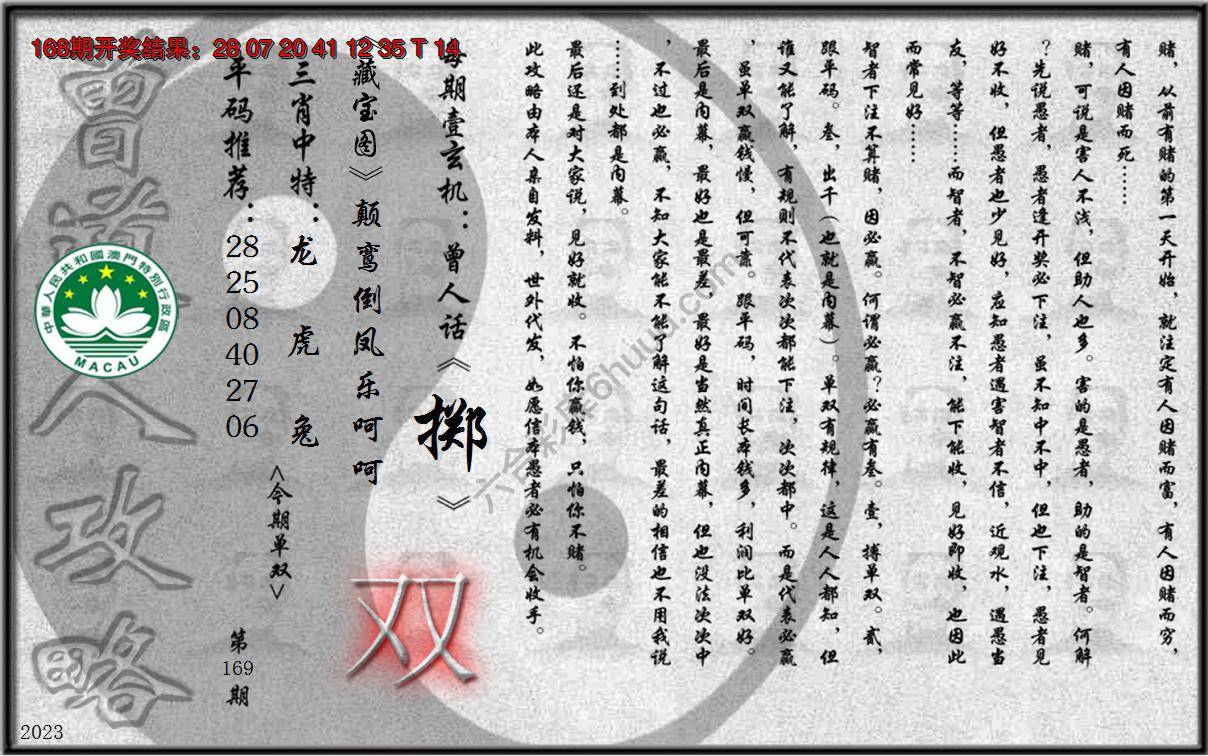 168期开奖结果：28 07 20 41 12 35 T 14
赌，从前有赌的第一天开始，就注定有人因赌而富，有人因赌而穷，
有人因赌而死……
赌，可说是害人不浅，但助人也多。害的是愚者，助的是智者。何解
？先说愚者，愚者逢开奖必下注，虽不知中不中，但也下注，愚者见
好不收，但愚者也少见好，应知愚者遇害智者不信，近观水，遇愚当
友，等等……而智者，不智必赢不注，能下能收，见好即收，也因此
而常见好……
智者下注不算赌，因必赢。何谓必赢？必赢有叁。壹，搏单双。贰，
跟平码。叁，出千（也就是内幕）。单双有规律，这是人人都知，但
谁又能了解，有规则不代表次次都能下注，次次都中。而是代表必赢
，虽单双赢钱慢，但可靠。跟平码，时间长本钱多，利润比单双好。
最后是内幕，最好也是最差，最好是当然真正内幕，但也没法次次中
，不过也必赢，不知大家能不能了解这句话，最差的相信也不用我说
……到处都是内幕。
最后还是对大家说，见好就收。不怕你赢钱，只怕你不赌。
此攻略由本人亲自发料，世外代发，如愿信本愚者必有机会收手。
每期壹玄机：曾人话《掷》
《藏宝图》颠鸾倒凤乐呵呵
三肖中特：龙虎兔
平码推荐：28 25 08 40 27 06
<今期单双>
双
第169期
曾道人攻略
中華人民共和國澳門特別行政區
MACAU
2023